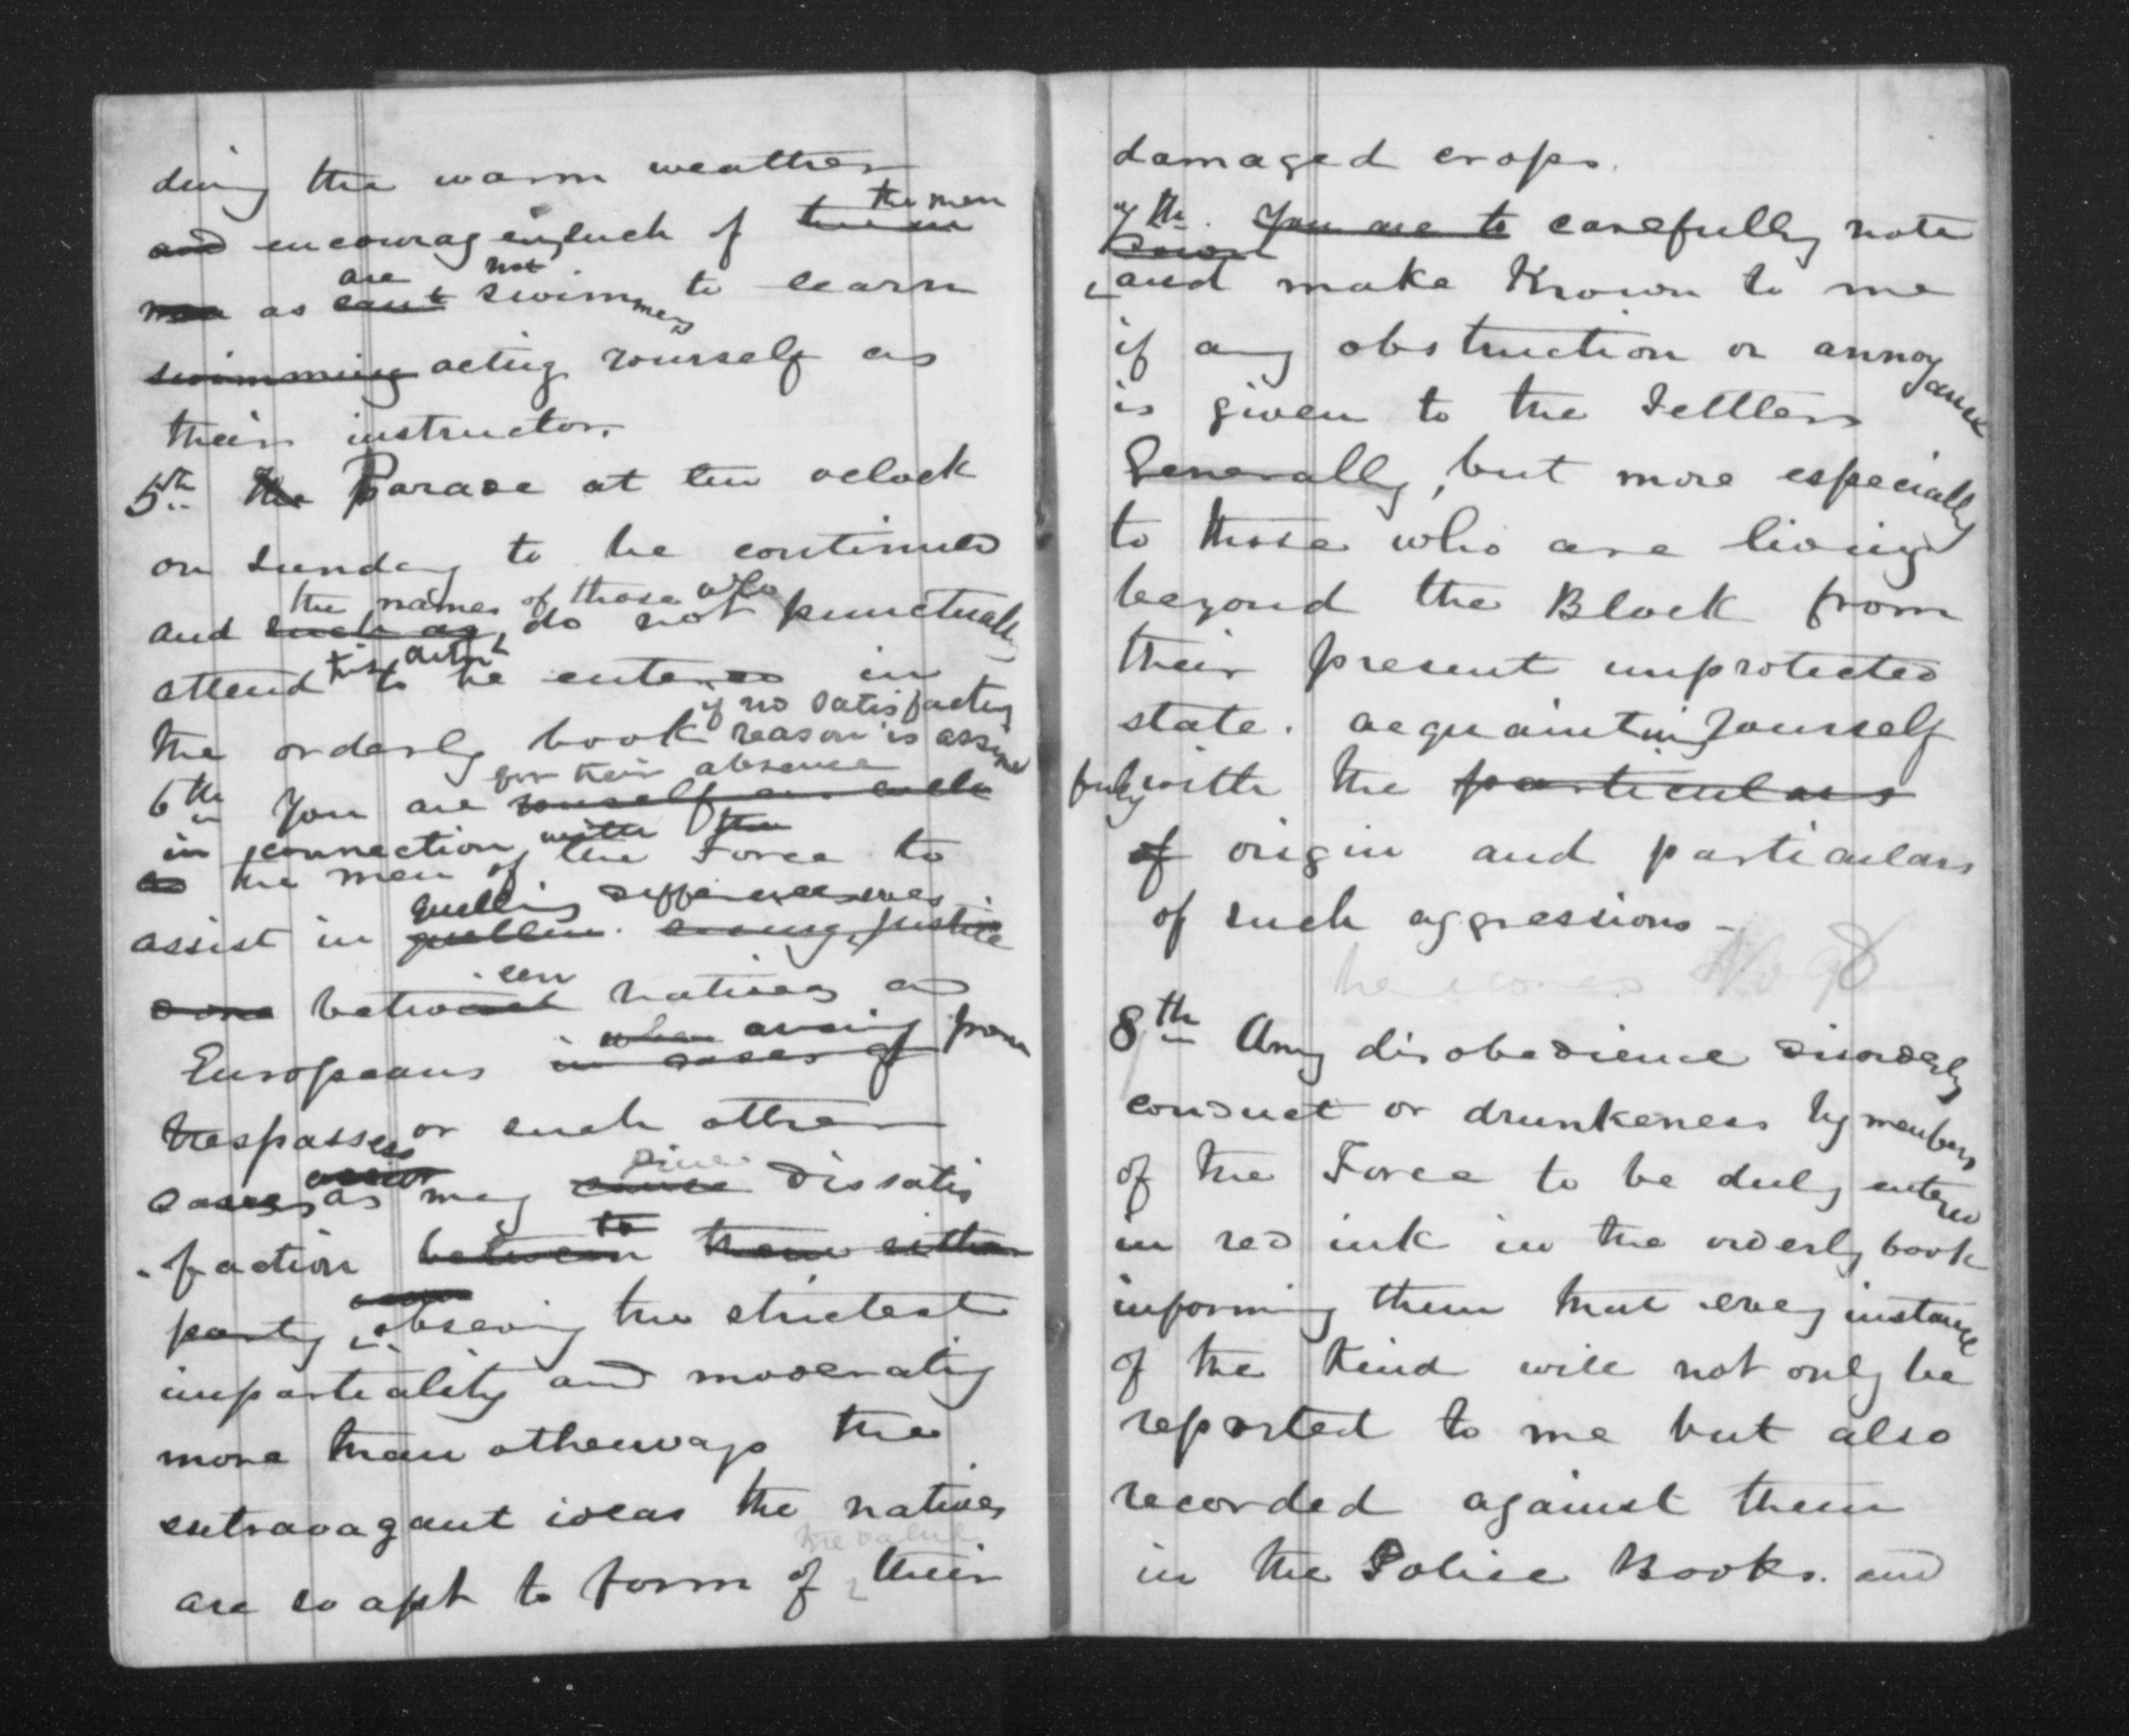 duing the warm weather
the men
and encourageing such of
are not
men as cant swimmers to learn
swimming acting yourself as
their instructor.
5th. The Parade at ten oclock
on Sunday to be continued
the names of those who
and such as, do not punctually
attend to be entered in
if no satisfactory
the orderly book reason is assigned
for their absence
6th You are yourself
in connection with the
as the men of the Force to
quelling differences
assist in justice
done between natives and
when arising from
Europeans in cases of
trespasses or such other
cases as may cause dissatis
to
-faction between them either
party, observing the strictest
impartiality and moderating
more than otherways the
extravagant ideas the natives
the value
are so apt to form of their
damaged crops.
7th. You are to carefully note
down
and make Known to me
if any obstruction or annoyance
is given to the Settlers
Generally, but more especially
to those who are living
beyond the Block from
their present unprotected
state. acquainting yourself
fully with the particulars
of origin and particulars
of such aggressions -
here comes No 98
8th Any disobedience disorderly
conduct or drunkeness by members
of the Force to be duly entered
in red ink in the orderly book
informing them that every instance
of the Kind will not only be
reported to me but also
recorded against them
in the Police Books. and